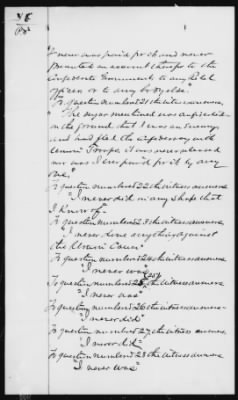 I never was paid for it and never
presented an account therefor to the
Confederate Government to any Rebel
officer or to any body else."
To question number 21 the witness answers,
"The sugar mentioned was
on the ground that I was an enemy
and had fled the Confederacy with
Union Troops, it was never returned
nor was I ever paid for it by any
one."
To question number 22 the witness answers
"I never did in any shape that
I Know of."
To question number 23 the witness answers
"I never done anything against
the Union Cause"
To question number 24 the witness answers
"I never was"
To question number 25 the witness answers
"I never was"
To question number 26 the witness answers
"I never did"
To question number 27 the witness answers
"I never did"
To question number 28 the witness answers
"I never was"